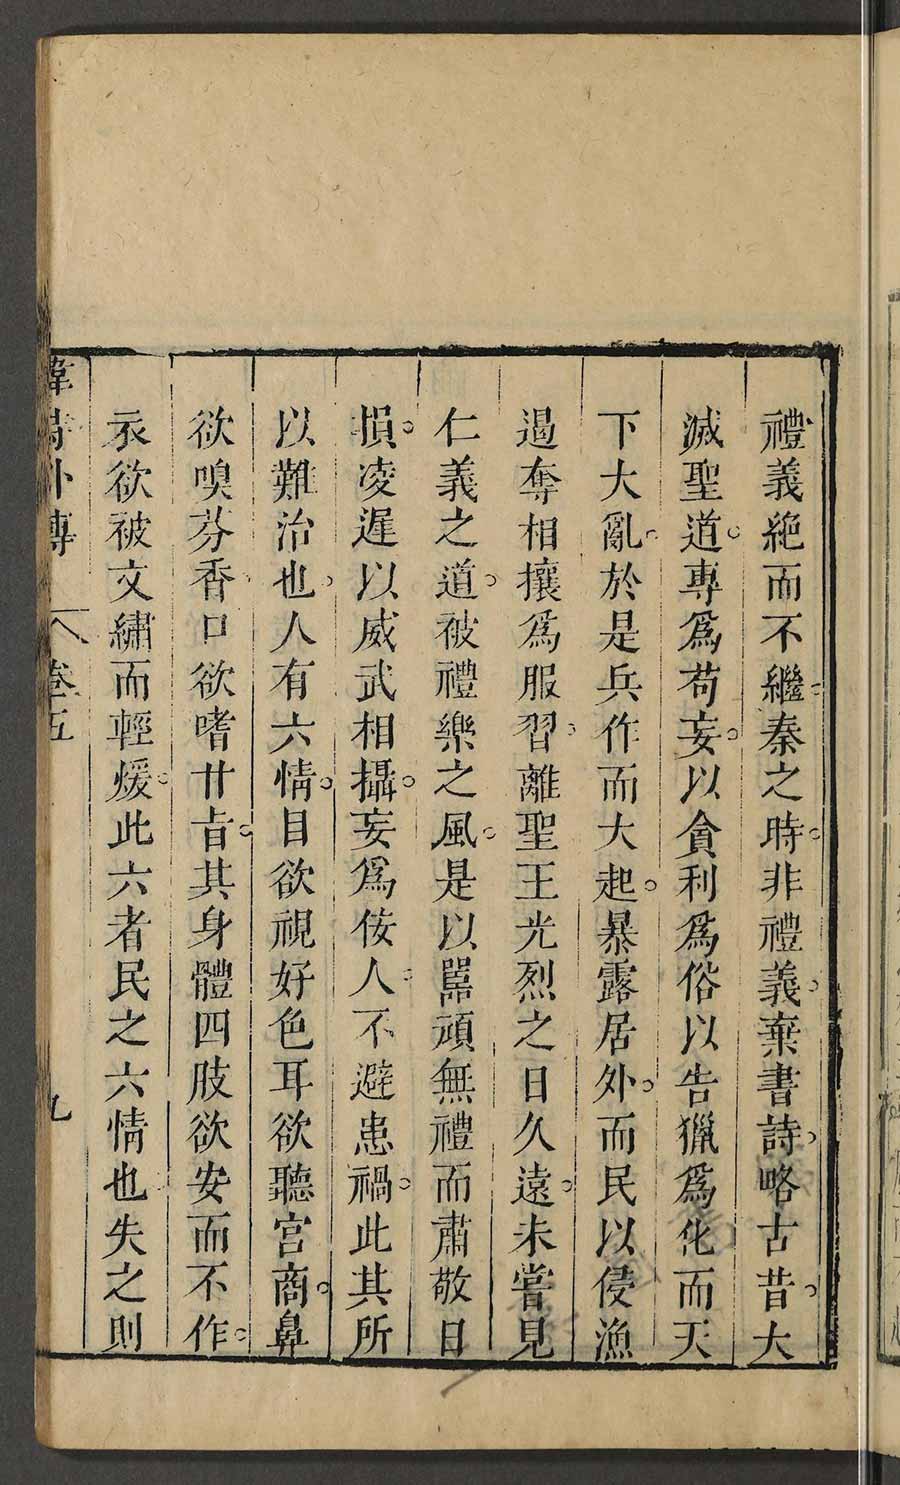 禮義絶而不繼秦之時非禮義棄書詩略古昔大
滅聖道專爲苟妄以貪利爲俗以告獵爲化而天
下大亂於是兵作而大起暴露居外而民以侵漁
遏奪相攘爲服習離聖王光烈之日久遠未嘗見
仁義之道被禮樂之風是以嚚頑無禮而肅敬日
損凌遲以威武相攝妄爲佞人不避患禍此其所
以難治也人有六情目欲視好色耳欲聽宮商鼻
欲嗅芬香口欲嗜甘旨其身體四肢欲安而不作
衣欲被文繡而輕煖此六者民之六情也失之則
韓詩外傳 卷五 九